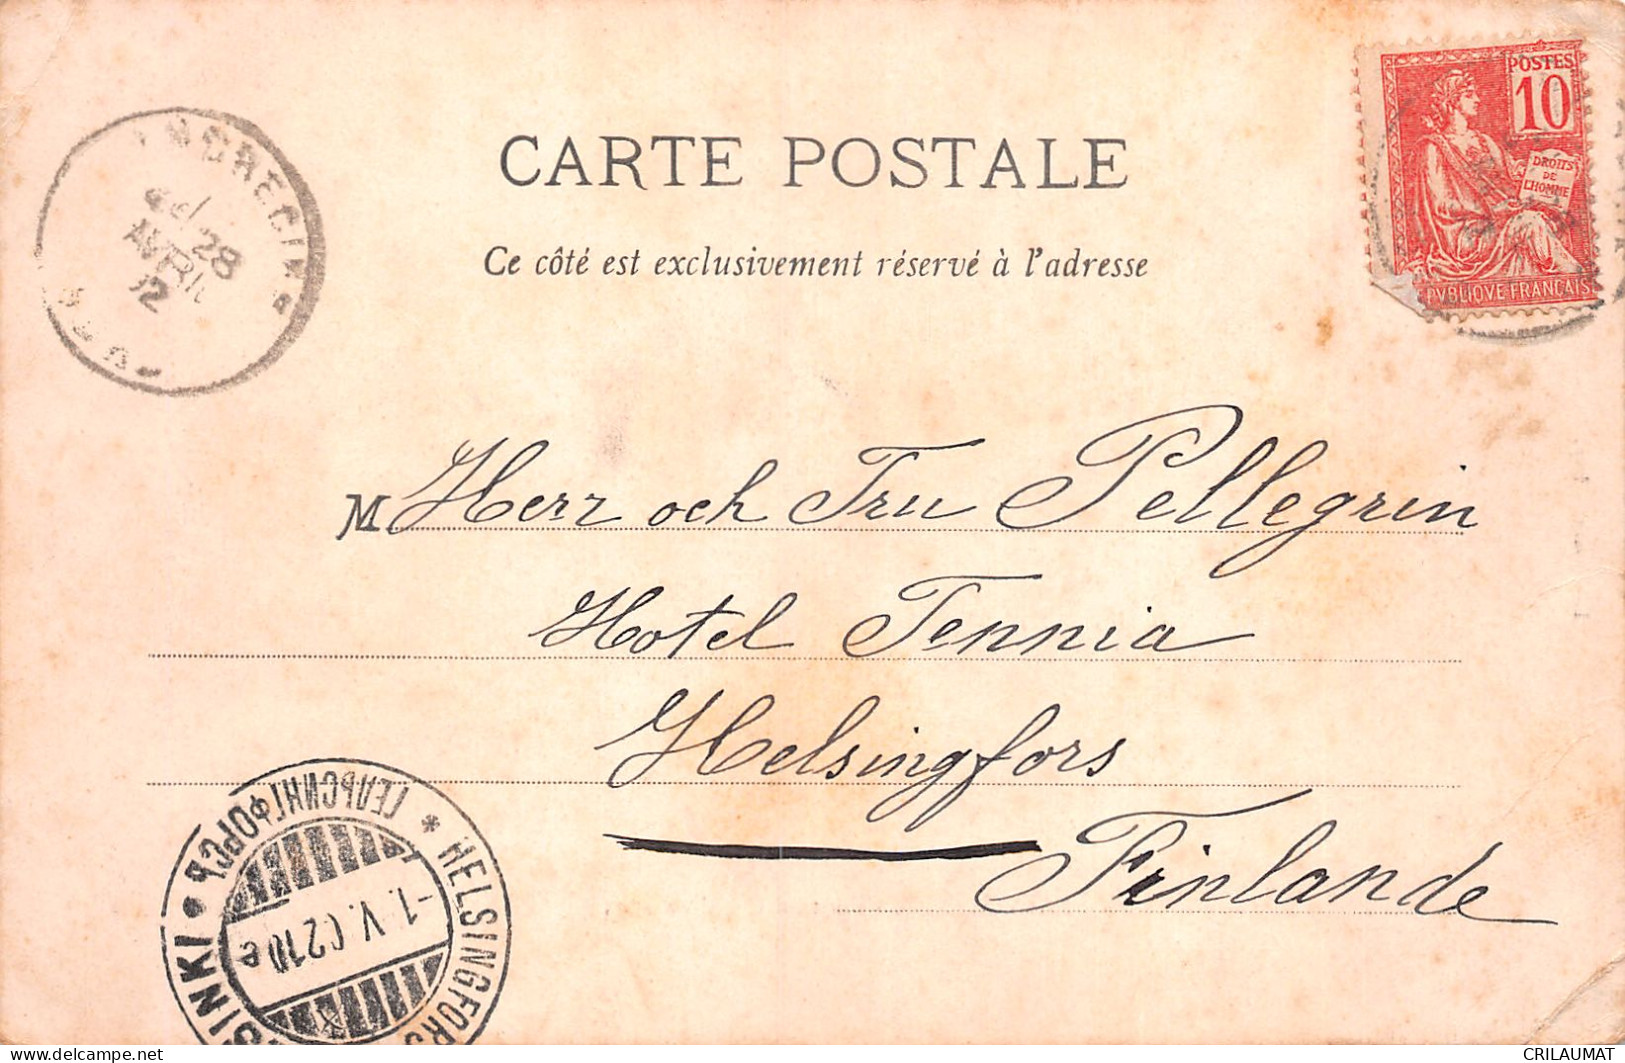 CARTE POSTALE
Ce côté est exclusivement réservé à l'adresse
POSTES
10
DROITS
DE
L'HOMME
PVBLIQVE FRANÇAIS
28
AVRIL
02
M Herr och Fru Pellegrin
Hotel Fennia
Helsingfors
Finlande
HELSINGFORS
ГЕЛЬСИНГФОРСЪ
SINKI
-1.V.02 10 e
delcampe.net
CRILAUMAT